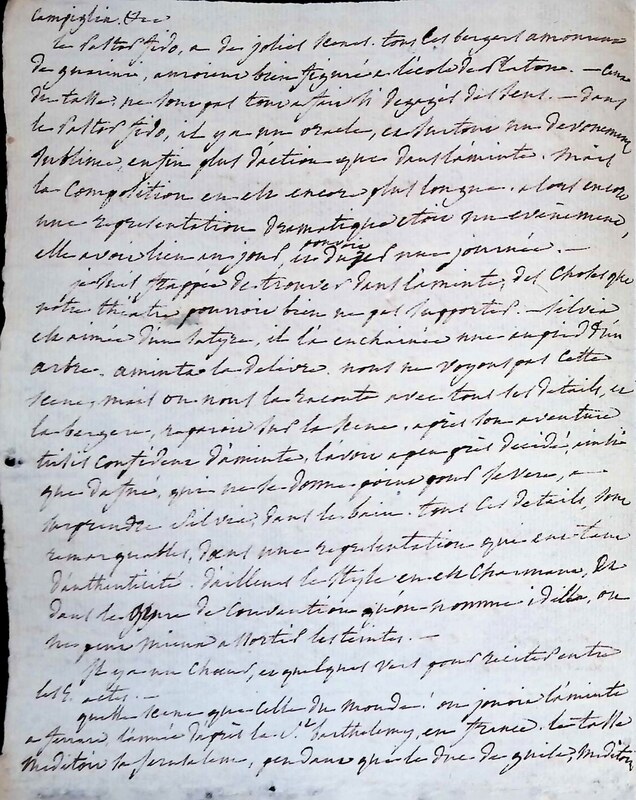 Campiglia. &c
le Pastor fido, a de jolies scenes. tous ces bergers amoureux
de guarini, auroient bien figuré a l'école de Platon. — Ceux
du tasse, ne sont pas tout a fait si degagés des sens. — dans
le Pastor fido, il y a un oracle, et surtout un devouement
sublime, enfin plus d'action que dans l'aminte. Mais
la Composition en est encore plus longue. alors encore
une representation dramatique etoit un evénement,
elle avoit lieu un jour, et pouvoit durer une journée. —
je suis frappée de trouver dans l'aminte, des choses que
nôtre théatre pourroit bien ne pas supporter. — Silvia
est aimée d'un satyre, il l'a enchainée nue au pied d'un
arbre. aminta la delivre. nous ne voyons pas cette
scene, mais on nous la raconte avec tous ses details, et
la bergere, reparoit sur la scene, après son aventure
tirsis confident d'aminte, l'avoit a peu près decidé, ainsi
que dafné, qui ne se donne point pour severe, a
surprendre Silvie, dans le bain. tous ces details, sont
remarquables, dans une representation qui eut tant
d'authenticité. d'ailleurs le style en est charmant, et
dans le genre de convention qu'on nomme idille, on
ne peut mieux assortir les teintes. —
Il y a un Choeur, et quelques vers pour reciter entre
les 5. actes. —
quelle scene que celle du monde! on jouoit l'aminte
a ferrare, l'année d'après la St. barthelemy, en france. le tasse
meditoit sa jerusalem, pendant que le duc de guise, meditoit